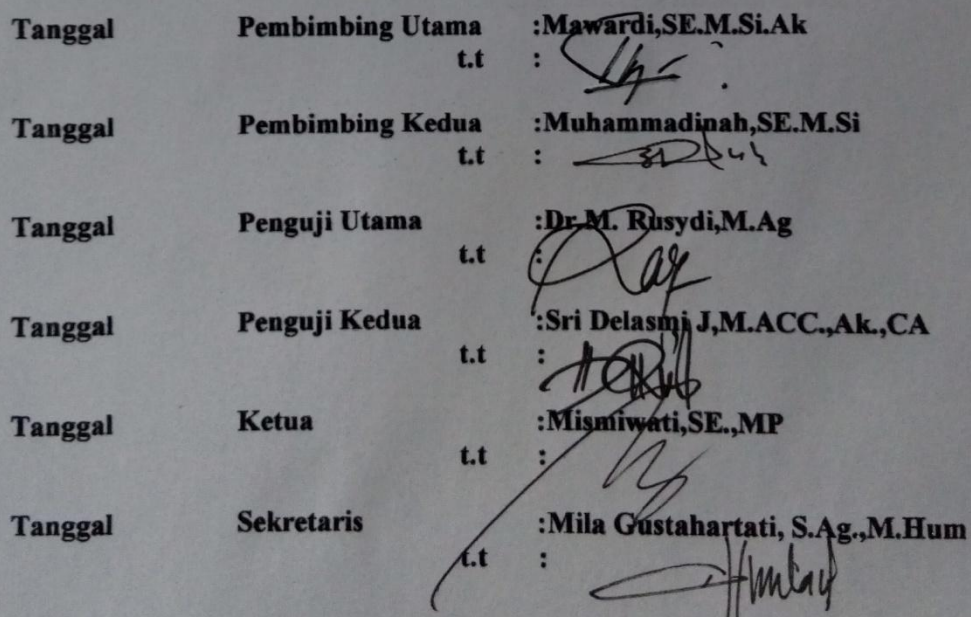 Tanggal Pembimbing Utama :Mawardi,SE.M.Si.Ak
t.t :
Tanggal Pembimbing Kedua :Muhammadinah,SE.M.Si
t.t :
Tanggal Penguji Utama :Dr.M. Rusydi,M.Ag
t.t :
Tanggal Penguji Kedua :Sri Delasmi J,M.ACC.,Ak.,CA
t.t :
Tanggal Ketua :Mismiwati,SE.,MP
t.t :
Tanggal Sekretaris :Mila Gustahartati, S.Ag.,M.Hum
t.t :